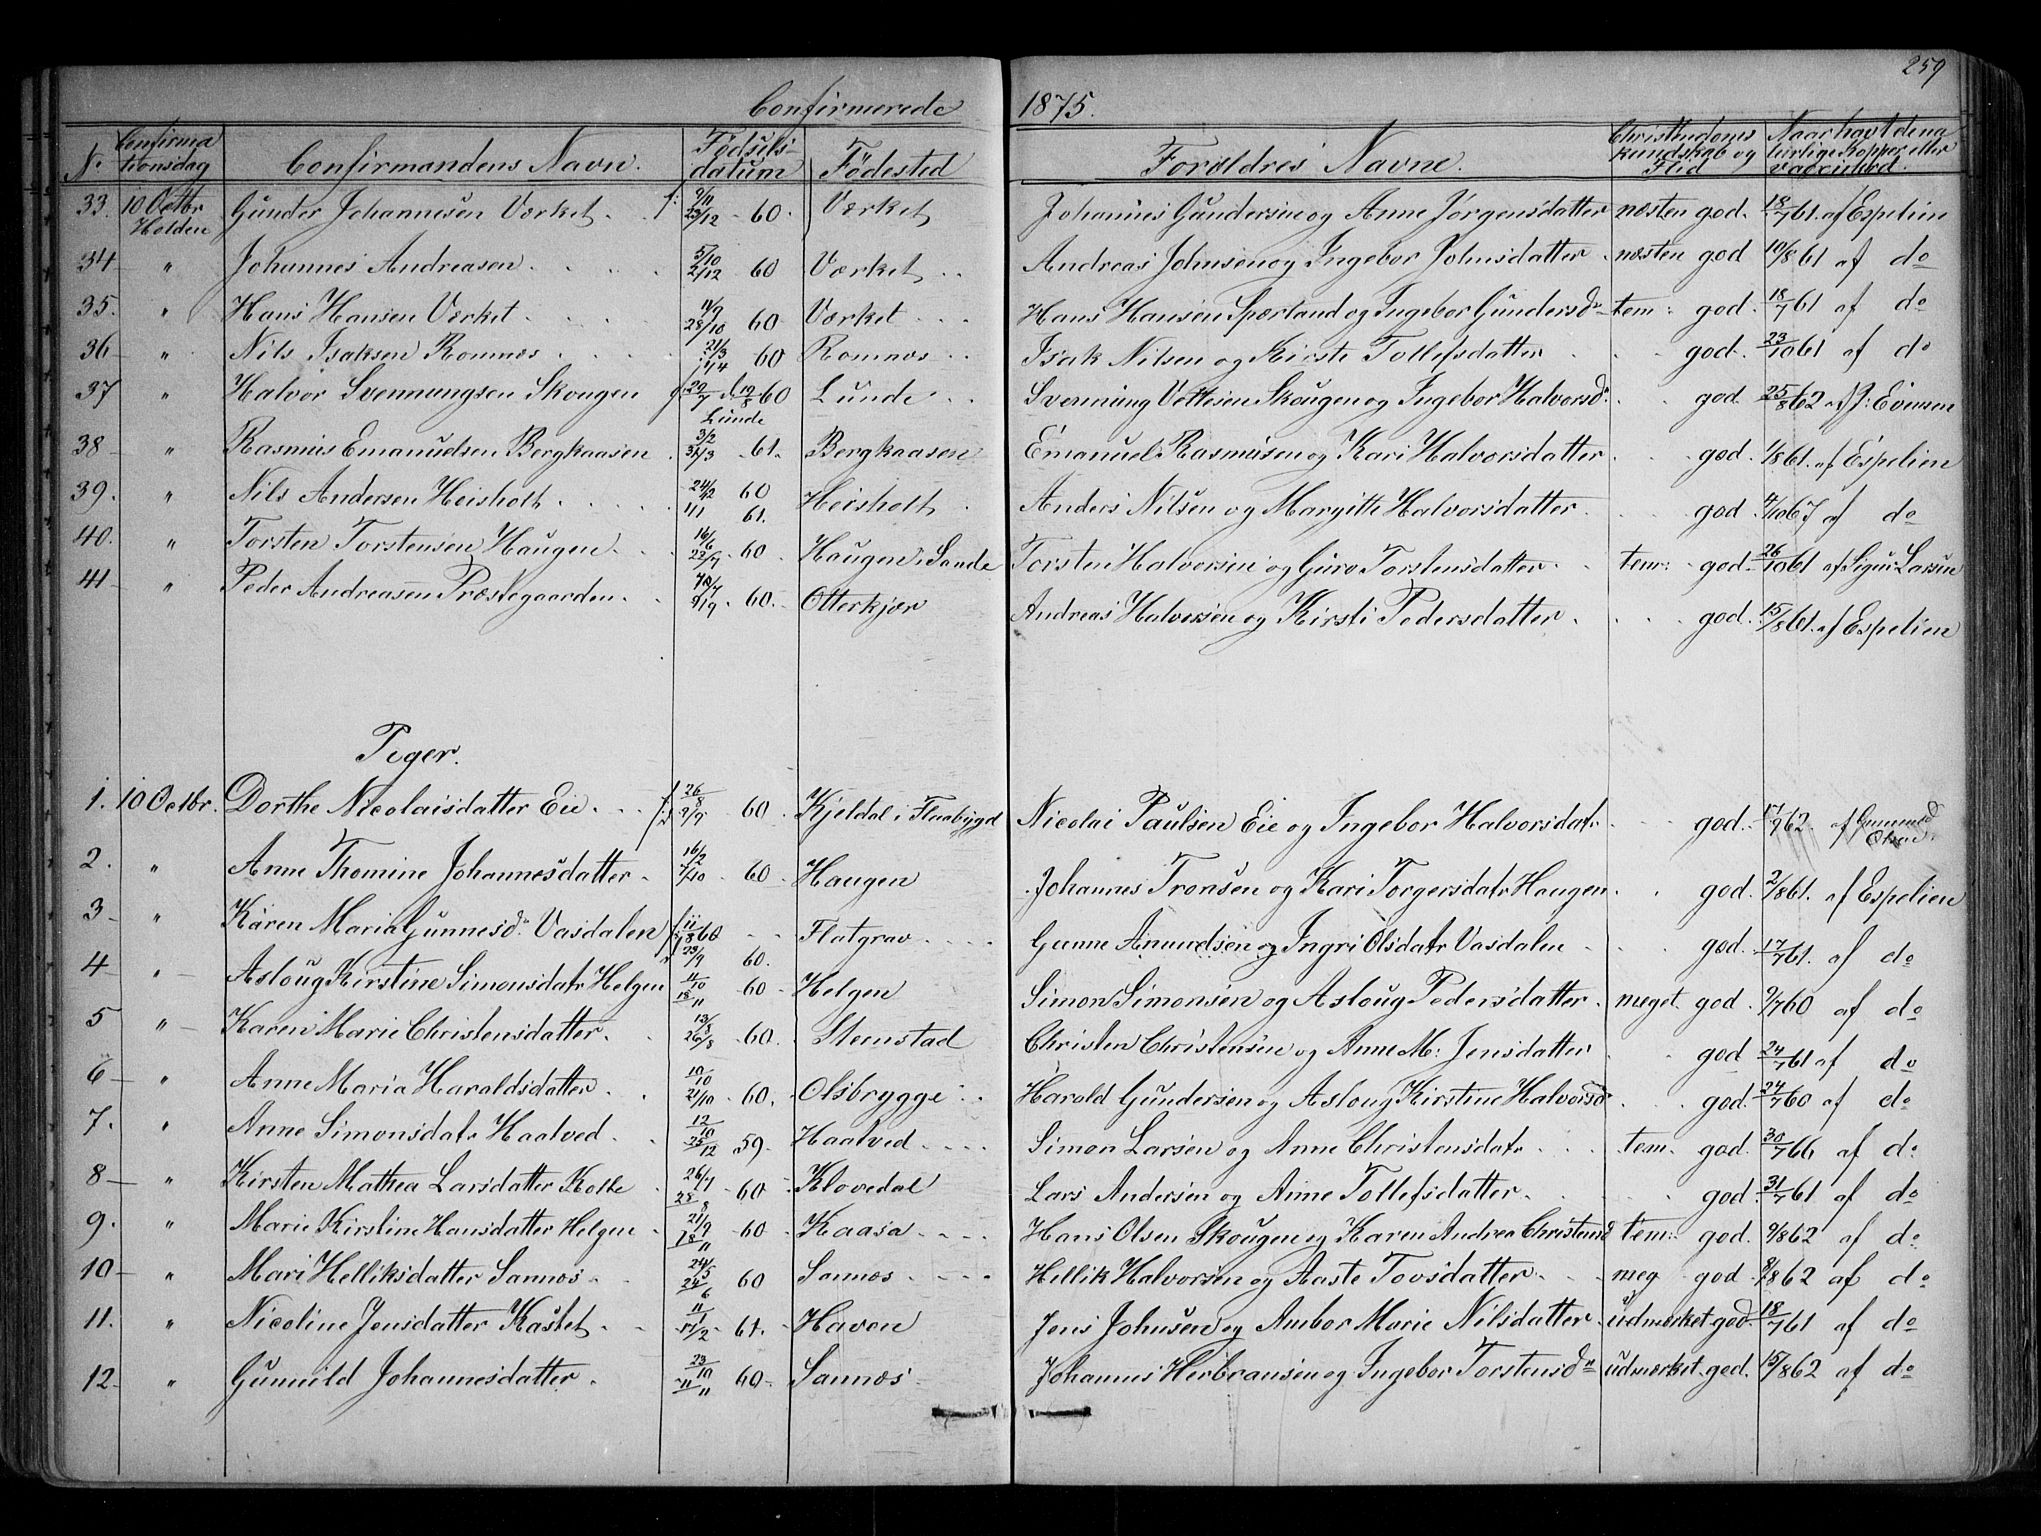 259
Confirmerede 1875.
No Confirmationsdag Confirmandens Navn. Fødselsdatum Fødested Forældres Navne. Christendoms kundskab og Flid Naar havt de naturlige Kopper eller vaccinered.
33. 10 Octbr Holden Gunder Johannesen Værket f: 9/11 23/12 60. Værket Johannes Gundersen og Anne Jørgensdatter næsten god. 18/7 61. af Espelien
34 " Johannes Andreasen 5/10 2/12 60 Værket Andreas Johnsen og Ingebor Johnsdatter næsten god 10/8 61 af do
35. " Hans Hansen Værket 11/9 28/10 60 Værket Hans Hansen Spærland og Ingebor Gundersdr tem: god. 18/7 61 af do
36 " Nils Isaksen Romnæs 21/3 60 Romnæs Isak Nilsen og Kirste Tollefsdatter god. 23/10 61 af do
37 " Halvor Svennungsen Skougen f. 29/7 d. 19/8 60 Lunde Lunde Svennung Vettesen Skougen og Ingebor Halvorsdr. god 25/8 62 af J: Evensen
38 " Rasmus Emanuelsen Bergkaasen 3/2 31/3 61. Bergkaasen Emanuel Rasmusen og Kari Halvorsdatter god. 1/8 61. af Espelien
39. " Nils Andersen Heisholt 24/12 60 1/1 61. Heisholt Anders Nilsen og Margitte Halvorsdatter god. 4/10 67 af do
40. " Torsten Torstensen Haugen 16/6 22/7 60 Haugen i Sande Torsten Halvorsen og Guro Torstensdatter tem: god. 26/10 61 af Sigur Larsen
41 " Peder Andreasen Præstegaarden 9/9 60. Otterkjær Andreas Halvorsen og Kirsti Pedersdatter god. 15/8 61. af Espelien
Piger.
1. 10 Octbr. Dorthe Nicolaisdatter Eie f. 26/8 d. 9/9 60 Kjeldal i Flaabygd Nicolai Paulsen Eie og Ingebor Halvorsdatr god. 17/7 62. af Gunmund Olsen
2. " Anne Thomine Johannesdatter 16/2 7/10 60 Haugen Johannes Tronsen og Kari Torgersdatr Haugen god. 2/8 61. af Espelien
3 " Karen Maria Gunnesd. Vasdalen f. 11/8 60 23/9 60. Flatgrav Gunne Amundsen og Ingri Olsdatr Vasdalen god. 17/7 61. af do
4 " Asloug Kirstine Simonsdatr Helgen 11/10 18/11 60 Helgen Simon Simonsen og Asloug Pedersdatter meget god. 9/7 60 af do
5 " Karen Marie Christensdatter 13/8 26/8 60. Stenstad Christen Christensen og Anne M: Jensdatter god 24/7 61 af do
6 " Anne Maria Haraldsdatter 10/10 21/10 60. Olsbrygge Harold Gundersen og Asloug Kirstine Halvorsd god. 24/7 60 af do
7. " Anne Simonsdatr Haatved 12/10 25/12 59. Haatved Simon Larsen og Anne Christensdatr tem. god. 30/7 66 af do
8 " Kirsten Mathea Larsdatter Kolte 26/7 28/8 60 Klovedal Lars Andersen og Anne Tollefsdatter god. 31/7 61 af do
9. " Marie Kirstine Hansdatter Helgen 21/9 18/11 60 Kaasa Hans Olsen Skougen og Karen Andrea Christensd tem: god. 9/8 62 af do
10 " Mari Helliksdatter Sannes 24/5 24/6 60 Sannes Hellik Halvorsen og Aaste Tovsdatter meg god 8/8 62 af do
11. " Nicoline Jensdatter Kastet 11/1 11/2 61. Haven Jens Johnsen og Ambor Marie Nilsdatter udmærket god. 18/7 61 af do
12 " Gunnild Johannesdatter 23/10 11/11 60 Sannes Johannes Herbransen og Ingebor Torstensdr udmærket god. 15/8 62 af do